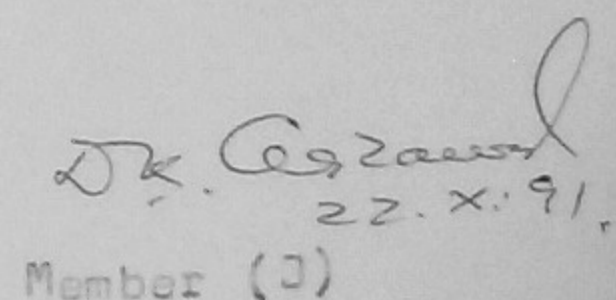 D.K. Agrawal
22.X.91.
Member (J)